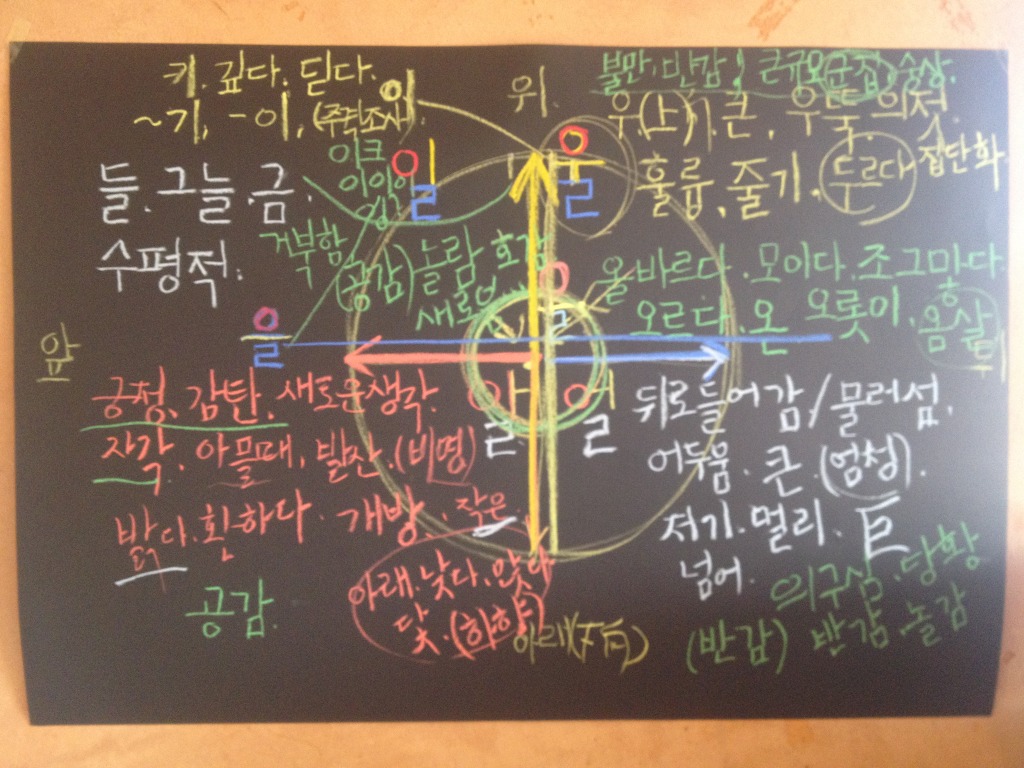 키. 깊다. 딛다.
~기, -이, (주격조사)
이
위.
불만. 반감,
우.(上), 큰, 우뚝.
훌륭, 줄기. 두르다 집단화
이크
이이이
일
울
들. 그늘. 금.
수평적.
거부함
(공감) 놀람, 호감
올바르다. 모이다. 조그마다
오르다. 온 오롯이,
을
올
앞
뒤
긍정, 감탄, 새로운생각
자각. 아물때, 발산. (비명)
환하다. 개방. 작은
알
얼
뒤로들어감/물러섬.
어두움. 큰. (엄청).
저기. 멀리. 巨
넘어.
아래. 낮다.
닻. (하향)
아래(下向)
공감.
의구심. 당황
(반감) 반감. 놀감